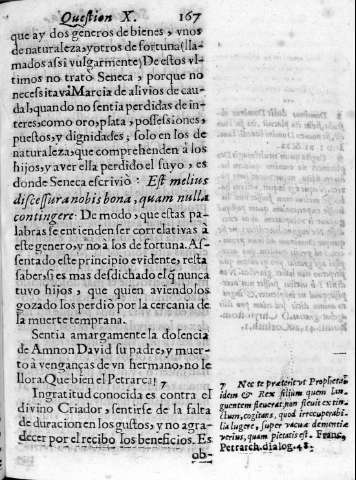 Question X. 167
que ay dos generos de bienes, vnos
de naturaleza, y otros de fortuna (lla-
mados assi vulgarmente) De estos vl-
timos no trató Seneca, porque no
necessitava Marcia de alivios de cau-
dal, quando no sentia perdidas de in-
teres, como oro, plata, possessiones,
puestos, y dignidades; solo en los de
naturaleza, que comprehenden à los
hijos, y aver ella perdido el suyo, es
donde Seneca escriviò: Est melius
discessura nobis bona, quam nulla
contingere: De modo, que estas pa-
labras se entienden ser correlativas à
este genero, y no à los de fortuna. As-
sentado este principio evidente, resta
saber, si es mas desdichado el q̃ nunca
tuvo hijos, que quien aviendolos
gozado los perdiò por la cercania de
la muerte temprana.
Sentia amargamente la dolencia
de Amnon David su padre, y muer-
to à venganças de vn hermano, no le
llora. Que bien el Petrarca! 7
Ingratitud conocida es contra el
divino Criador, sentirse de la falta
de duracion en los gustos, y no agra-
decer por el recibo los beneficios. Es
ob-
7 Nec te præterit ut Propheta
idem & Rex filium quem lan-
guentem fleverat, non flevit extin-
ctum, cogitans, quod irrecuperabi-
lia lugere, super vacuæ dementiæ
verius, quam pietatis est. Franc.
Petrarch. dialog. 48.